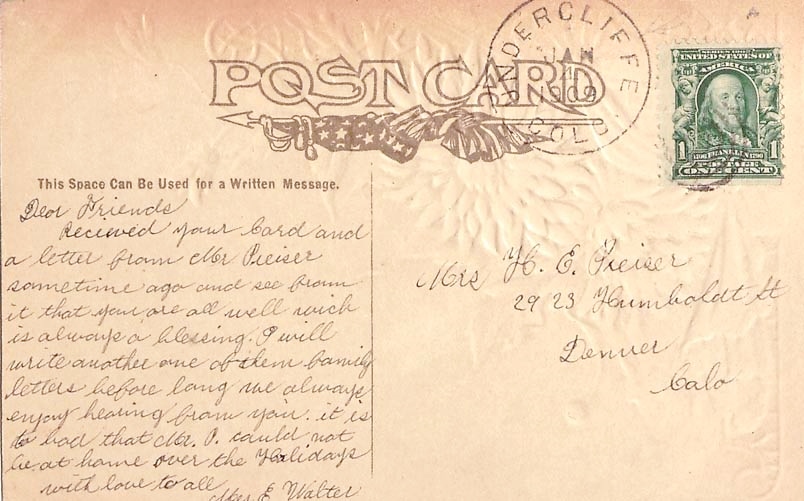 POST CARD
VANDERCLIFFE
JAN
4
1909
COLO.
SERIES 1902
UNITED STATES OF
AMERICA
1706 FRANKLIN 1790
1 POSTAGE 1
ONE CENT
This Space Can Be Used for a Written Message.
Dear Friends
Recieved your Card and
a letter from Mr Preiser
sometime ago and see from
it that you are all well wich
is always a blessing. I will
write another one of them family
letters before long we always
enjoy hearing from you. it is
to bad that Mr. P. could not
be at home over the Holidays
with love to all
Mrs E Walter
Mrs H. E. Preiser
2923 Humboldt St
Denver
Colo
This